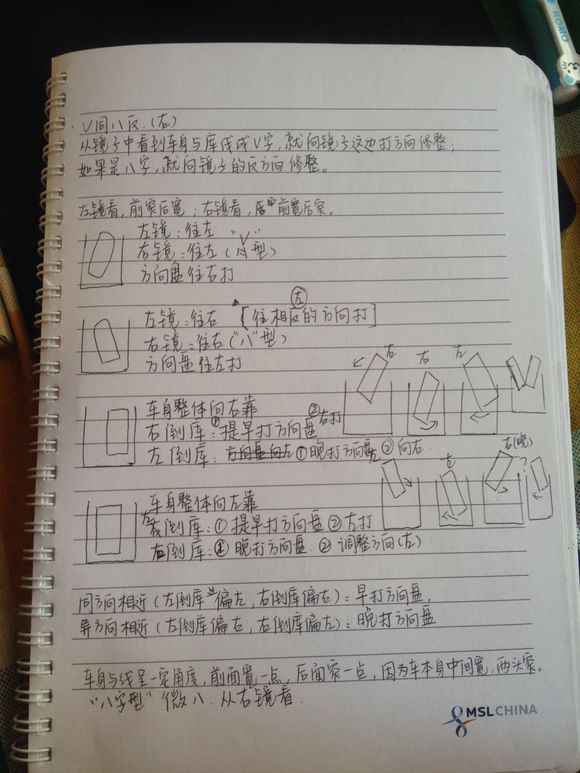 V同八反.(右)
从镜子中看到车身与库成成V字,就向镜子这边打方向修整;
如果是八字,就向镜子的反方向修整。
左镜看,前窄后宽;右镜看,前宽后窄。
左镜:往左 "V"
右镜:往左(型)
方向盘往右打
左
左镜:往右 [往相反的方向打]
右镜:往右("八"型)
方向盘往左打
右 右 左
车身整体向右靠
右倒库:①提早打方向盘 ②右打
左倒库: ①晚打方向盘 ②向右
车身整体向左靠
左 右(晚) ?
左倒库:①提早打方向盘 ②左打
右倒库:①晚打方向盘 ②调整方向(左)
同方向相近(左倒库偏左,右倒库偏右):早打方向盘,
异方向相近(左倒库偏右,右倒库偏左):晚打方向盘
车身与线呈一定角度,前面宽一点,后面窄一点,因为车本身中间宽,两头窄。
"八字型" 微八.从右镜看.
MSLCHINA
KOMO